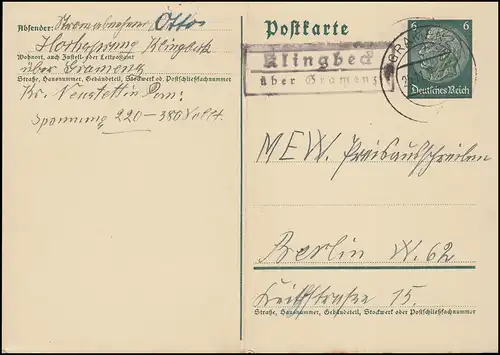 Absender: Stromabnehmer Otto
Klingbeck
Wohnort, auch Zustell- oder Leitpostamt
über Gramenz
Straße, Hausnummer, Gebäudeteil, Stockwerk od. Postschließfachnummer
Kr. Neustettin Pom.
Spannung 220-380 Volt.
Postkarte
Klingbeck
über Gramenz
GRAM
6 6
Deutsches Reich
MEW. Preisausschreiben
Berlin W. 62
Keithstraße 15.
Straße, Hausnummer, Gebäudeteil, Stockwerk oder Postschließfachnummer